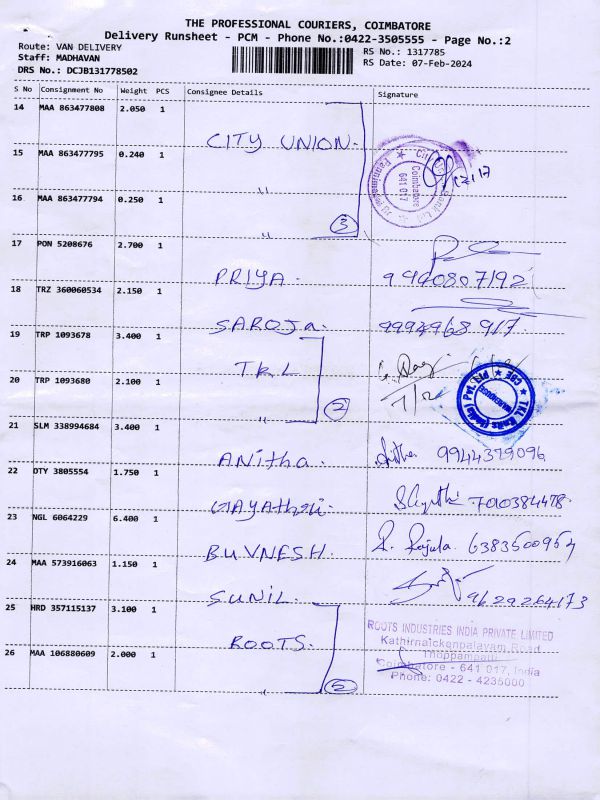 THE PROFESSIONAL COURIERS, COIMBATORE
Delivery Runsheet - PCM - Phone No.:0422-3505555 - Page No.:2
Route: VAN DELIVERY
RS No.: 1317785
Staff: MADHAVAN
RS Date: 07-Feb-2024
DRS No.: DCJB131778502
S No Consignment No Weight PCS Consignee Details Signature
14 MAA 863477808 2.050 1
CITY UNION.
15 MAA 863477795 0.240 1
"
Coimbatore
641 017
16 MAA 863477794 0.250 1
" 3
17 PON 5208676 2.700 1
PRIYA. 9940807192
18 TRZ 360060534 2.150 1
SAROJA. 9994968917.
19 TRP 1093678 3.400 1
TKL
20 TRP 1093680 2.100 1
" 2
TKL Knits (India) Pvt. Ltd ★ CBE ★
WAREHOUSE
21 SLM 338994684 3.400 1
ANitha. 9944379096
22 DTY 3805554 1.750 1
GAYAthri. 7010384478
23 NGL 6064229 6.400 1
BUVNESH. R. Rajula. 6383500954
24 MAA 573916063 1.150 1
SUNIL. 9629264173
25 HRD 357115137 3.100 1
ROOTS.
ROOTS INDUSTRIES INDIA PRIVATE LIMITED
Kathirnaickenpalayam Road
Thoppampatti
Coimbatore - 641 017, India
Phone: 0422 - 4235000
26 MAA 106880609 2.000 1
" 5